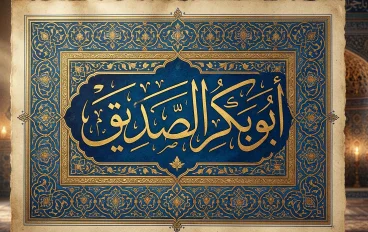 أَبُو بَكْرِ الصَّدِيق